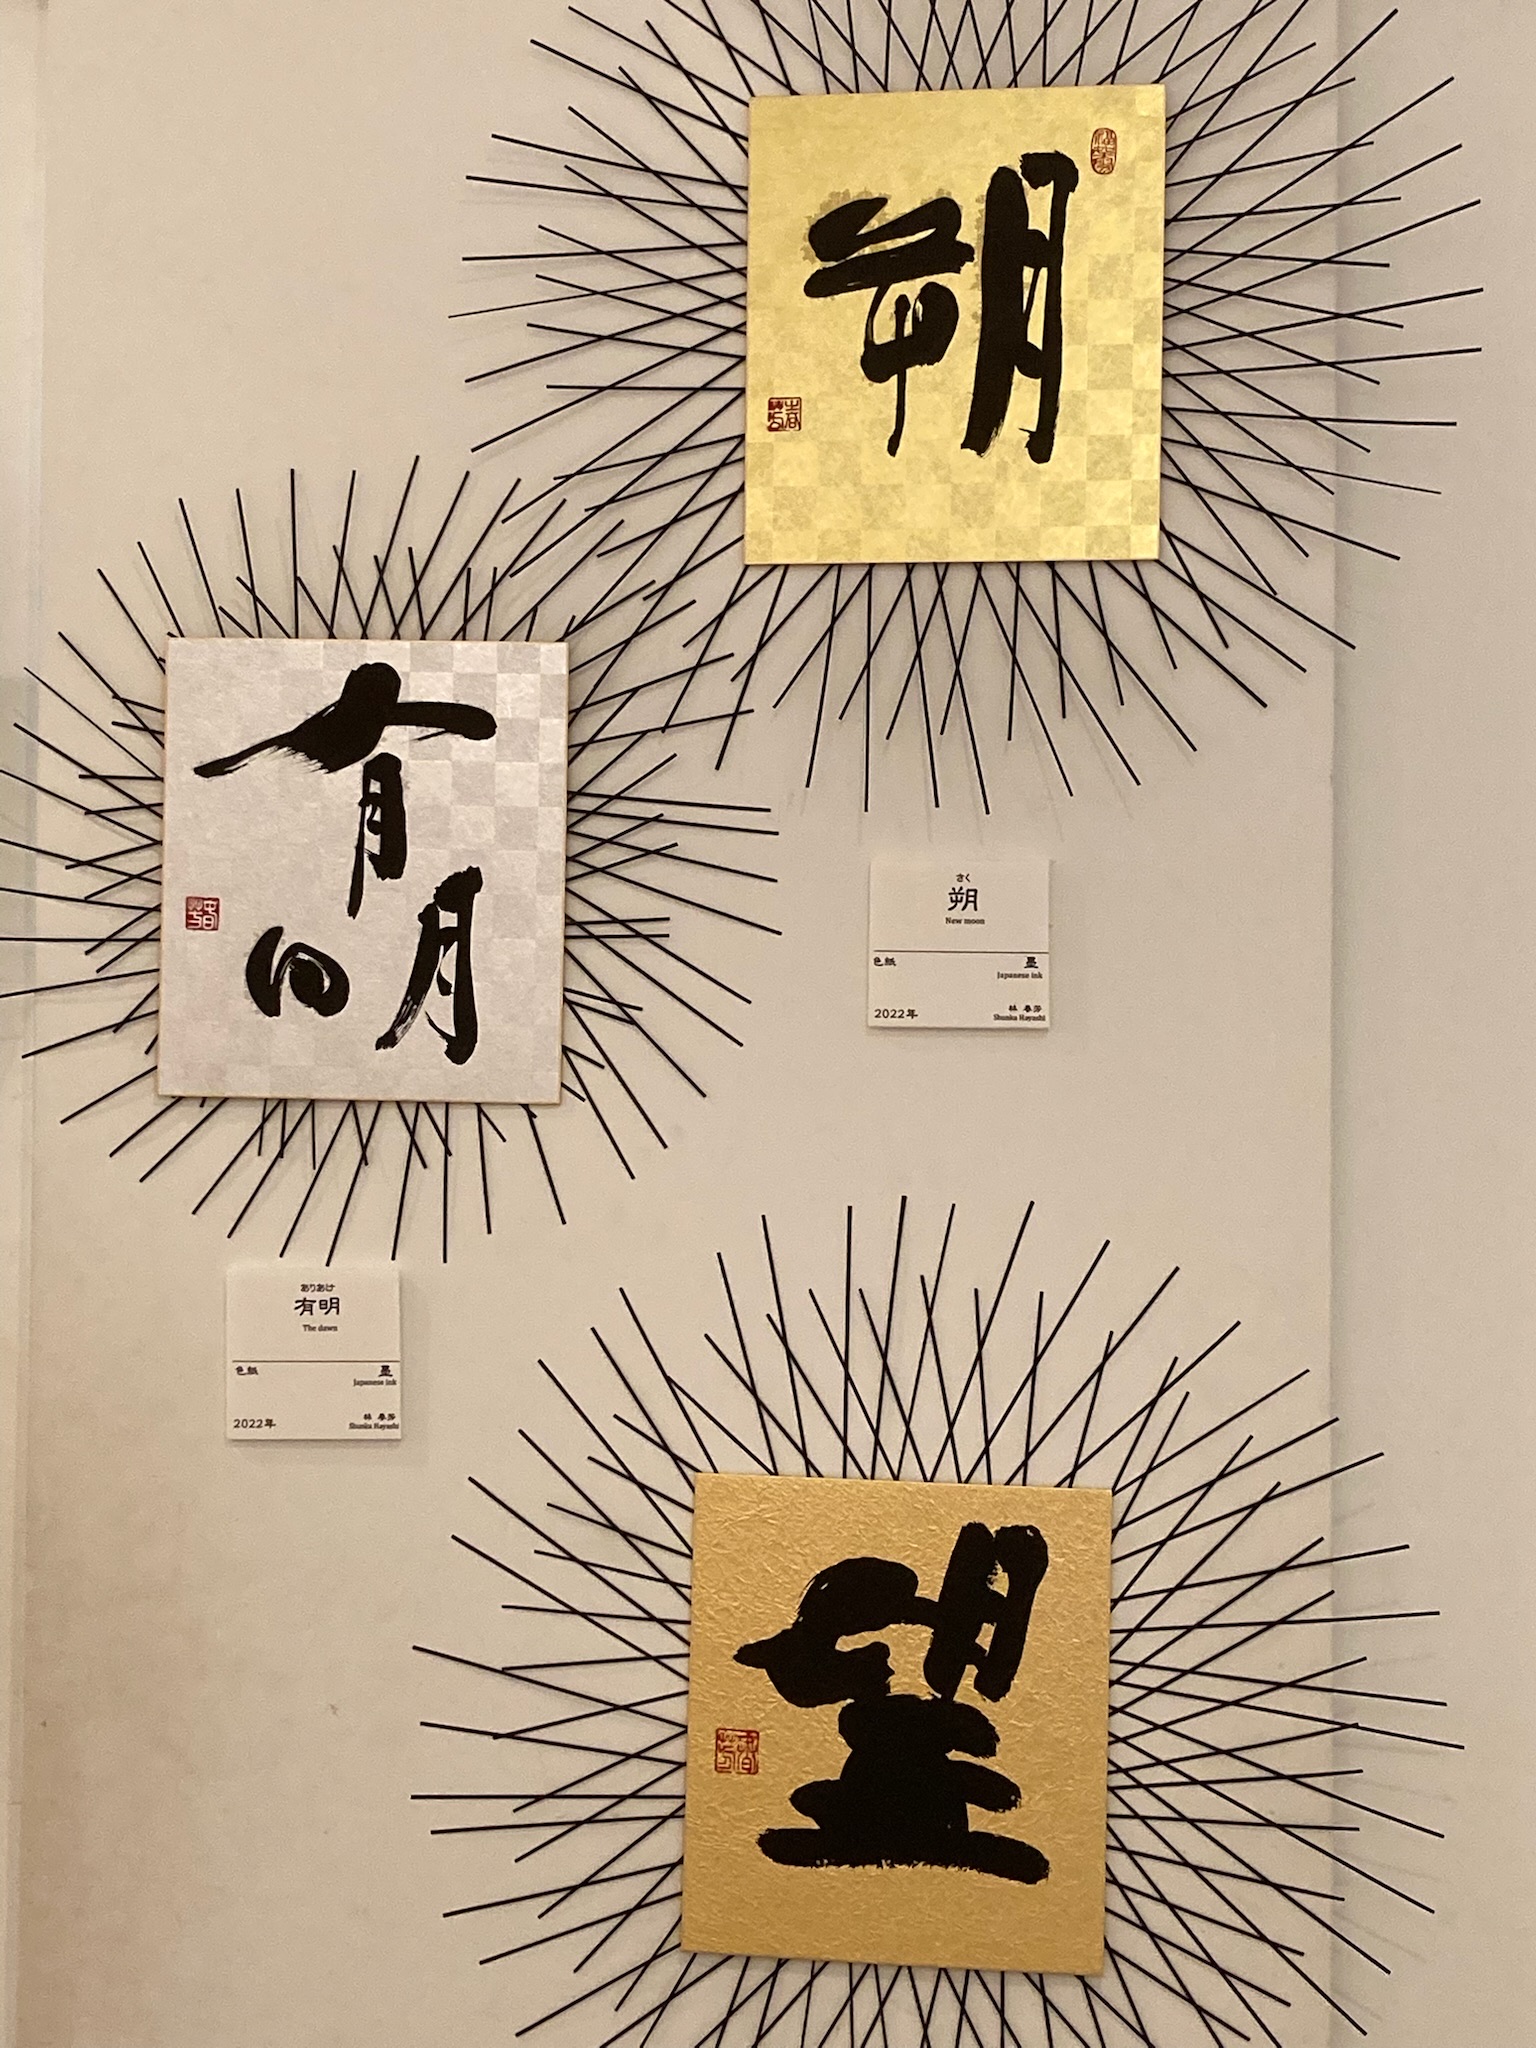 朔
有
明
さく
朔
New moon
色紙 墨
Japanese ink
2022年 林 春芳
Shunka Hayashi
ありあけ
有明
The dawn
色紙 墨
Japanese ink
2022年 林 春芳
Shunka Hayashi
望